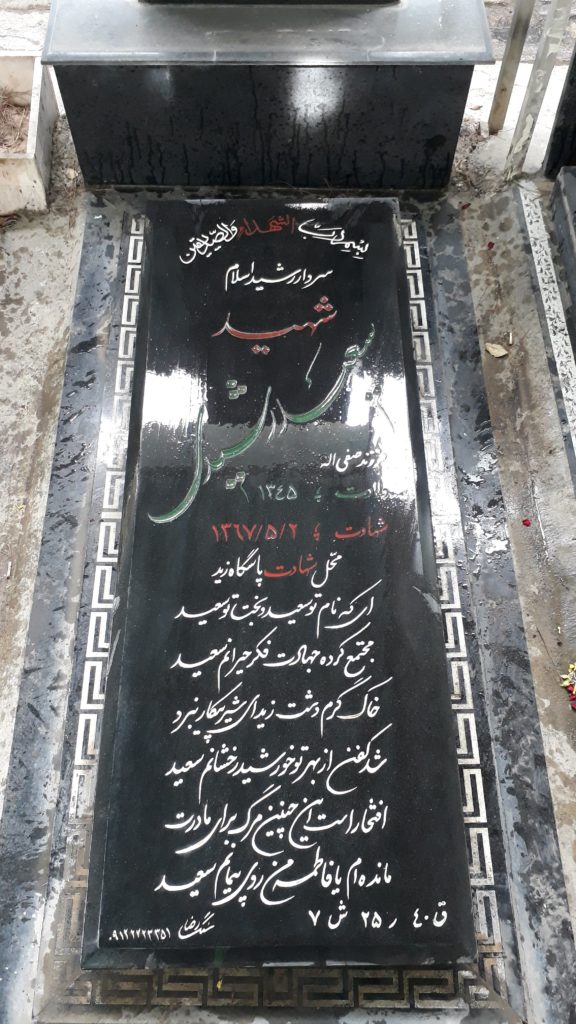 بسم رب الشهداء والصدیقین
سردار رشید اسلام
شهید
سعید
فرزند صفی اله
ولادت : ۱۳۴۵
شهادت : ۱۳۶۷/۵/۲
محل شهادت پاسگاه زید
ای که نام تو سعید و بخت تو سعید
مجتمع کرده جهادت فکر حیرانم سعید
خاک گرم دشت زید ای شیر پیکار نبرد
شد کفن از بهر تو خورشید رخشانم سعید
افتخار است این چنین مرگ برای مادرت
مانده ام یا فاطمه من روی پیمانم سعید
ق ۴۰ ر ۲۵ ش ۷
سنگ رضا